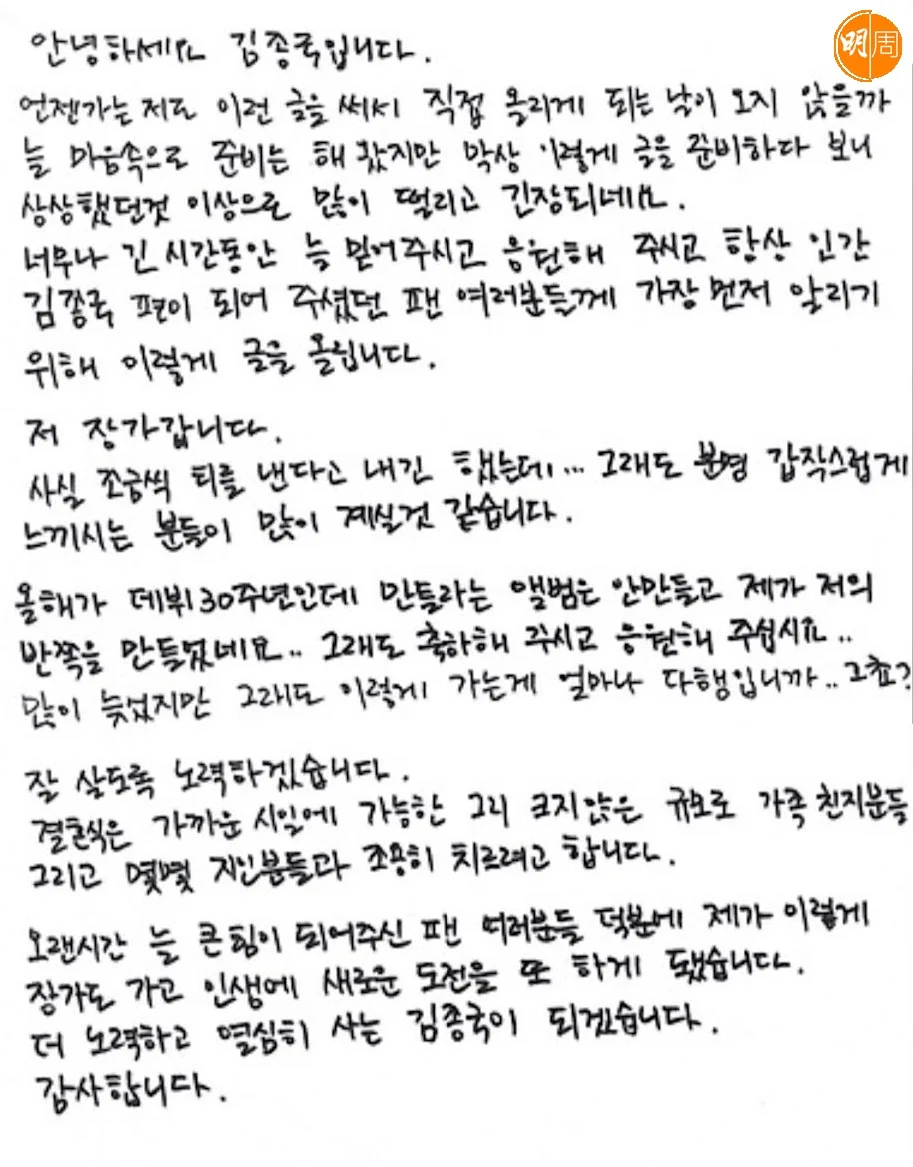 明周
안녕하세요 김종국입니다.
언젠가는 저도 이런 글을 써서 직접 올리게 되는 날이 오지 않을까
늘 마음속으로 준비는 해 왔지만 막상 이렇게 글을 준비하다 보니
상상했던것 이상으로 많이 떨리고 긴장되네요.
너무나 긴 시간동안 늘 믿어주시고 응원해 주시고 항상 인간
김종국 편이 되어 주셨던 팬 여러분들께 가장 먼저 알리기
위해 이렇게 글을 올립니다.
저 장가갑니다.
사실 조금씩 티를 낸다고 내긴 했는데... 그래도 분명 갑작스럽게
느끼시는 분들이 많이 계실것 같습니다.
올해가 데뷔 30주년인데 만들라는 앨범은 안만들고 제가 저의
반쪽을 만들었네요.. 그래도 축하해 주시고 응원해 주십시요..
많이 늦었지만 그래도 이렇게 가는게 얼마나 다행입니까.. 그쵸?
잘 살도록 노력하겠습니다.
결혼식은 가까운 시일에 가능한 그리 크지않은 규모로 가족 친지분들
그리고 몇몇 지인분들과 조용히 치르려고 합니다.
오랜시간 늘 큰 힘이 되어주신 팬 여러분들 덕분에 제가 이렇게
장가도 가고 인생에 새로운 도전을 또 하게 됐습니다.
더 노력하고 열심히 사는 김종국이 되겠습니다.
감사합니다.